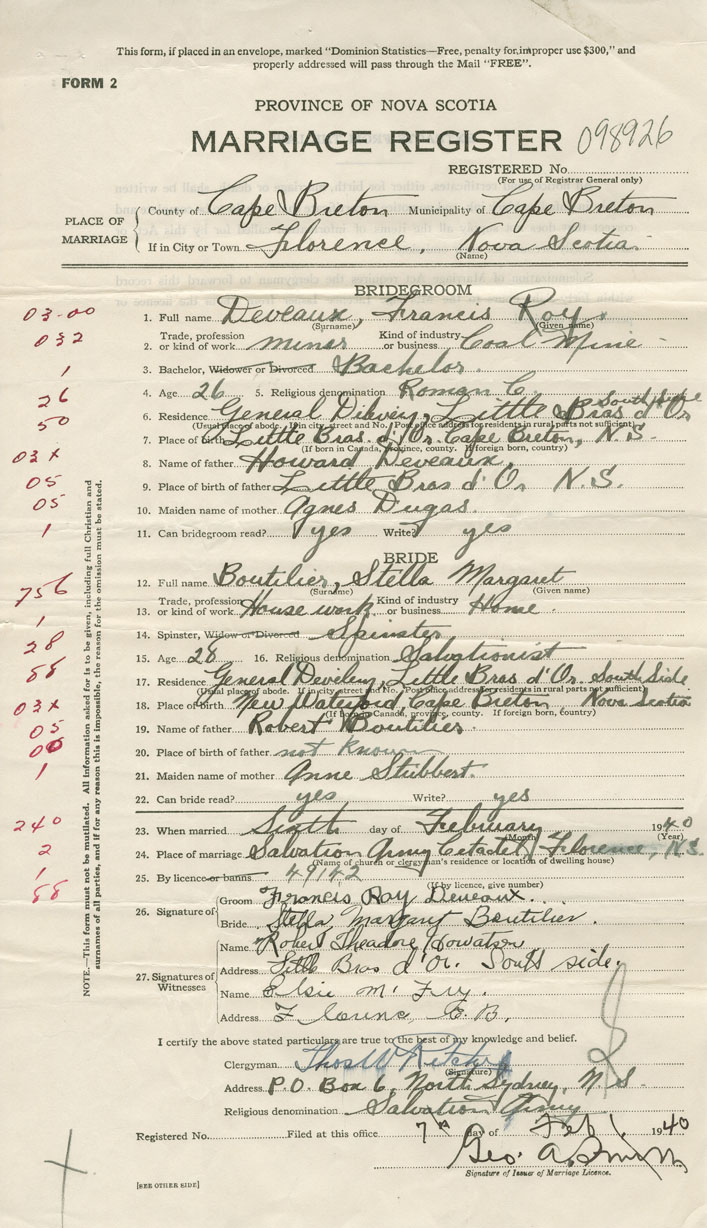 This form, if placed in an envelope, marked "Dominion Statistics—Free, penalty for improper use $300," and
properly addressed will pass through the Mail "FREE".
FORM 2
PROVINCE OF NOVA SCOTIA
MARRIAGE REGISTER 098926
REGISTERED No.
(For use of Registrar General only)
PLACE OF MARRIAGE
County of Cape Breton Municipality of Cape Breton
If in City or Town Florence, Nova Scotia
(Name)
BRIDEGROOM
03-00 1. Full name Deveaux, Francis Roy.
(Surname) (Given name)
032 2. Trade, profession or kind of work miner Kind of industry or business Coal Mine -
1 3. Bachelor, Widower or Divorced Bachelor.
26 4. Age 26 5. Religious denomination Roman C.
50 6. Residence General Dilvery, Little Bras d'Or South Side
(Usual place of abode. If in city street and No. Post office address for residents in rural parts not sufficient)
03x 7. Place of birth Little Bras. d'Or. Cape Breton, N.S.
(If born in Canada, province, county. If foreign born, country)
05 8. Name of father Howard Deveaux.
05 9. Place of birth of father Little Bras d'Or N.S.
10. Maiden name of mother Agnes Dugas.
1 11. Can bridegroom read? yes Write? yes
BRIDE
756 12. Full name Boutilier, Stella Margaret
(Surname) (Given name)
13. Trade, profession or kind of work House work Kind of industry or business Home.
1 14. Spinster, Widow or Divorced Spinster
28 15. Age 28 16. Religious denomination Salvationist
88 17. Residence General Develery, Little Bras d'Or. South Side
(Usual place of abode. If in city street and No. Post office address for residents in rural parts not sufficient)
03x 18. Place of birth New Waterford, Cape Breton, Nova Scotia
(If born in Canada, province, county. If foreign born, country)
05 19. Name of father Robert Boutilier.
00 20. Place of birth of father not known
1 21. Maiden name of mother Anne Stubbert.
22. Can bride read? yes Write? yes
240 23. When married Sixth day of February 1940
(Month) (Year)
2 24. Place of marriage Salvation Army Citadel, Florence, N.S.
(Name of church or clergyman's residence or location of dwelling house)
1 25. By licence or banns 49142
(If by licence, give number)
88 26. Signature of
Groom Francis Roy Deveaux.
Bride Stella Margaret Boutilier.
27. Signatures of Witnesses
Name Robert Theadore Howatson
Address Little Bras d'Or. South side.
Name Elsie M. Fry.
Address Florence, C.B.
I certify the above stated particulars are true to the best of my knowledge and belief.
Clergyman Thos W Ritchie
(Signature)
Address P.O. Box 6, North Sydney, N.S.
Religious denomination Salvation Army
Registered No. Filed at this office 7th day of Feb. 1940
Geo. A. Smith
Signature of Issuer of Marriage Licence.
[SEE OTHER SIDE]
NOTE.—This form must not be mutilated. All information asked for is to be given, including full Christian and
surnames of all parties, and if for any reason this is impossible, the reason for the omission must be stated.